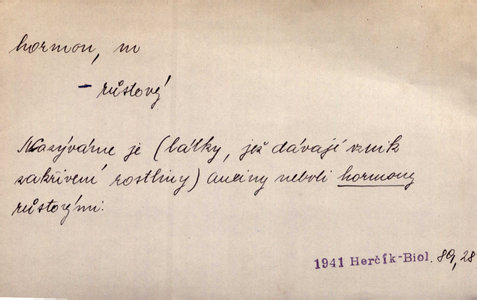 hormon, m
– růstový
Nazýváme je (látky, jež dávají vznik
zakřivení rostliny) auxiny neboli hormony
růstovými.
1941 Herčík-Biol. 89, 28